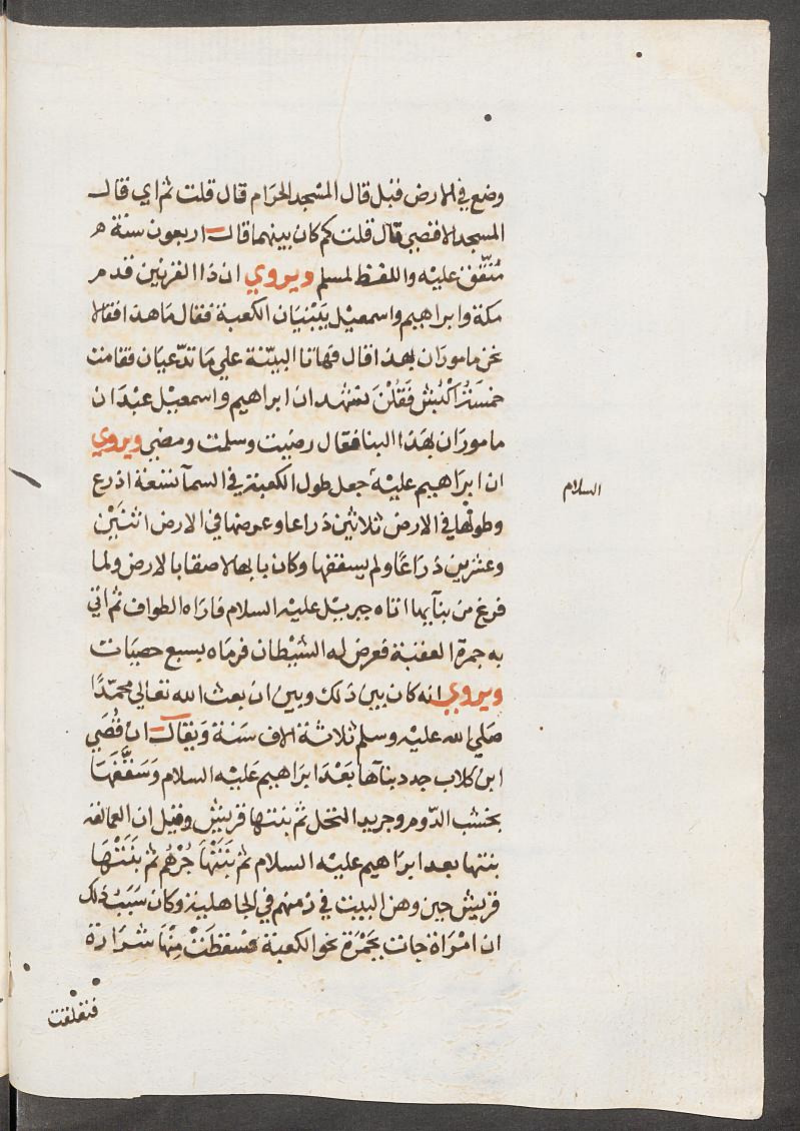 وضع في الارض قبل قال المسجد الحرام قال قلت ثم اي قال
المسجد الاقصي قال قلت كم كان بينهما قال اربعون سنة ه
متفق عليه واللفظ لمسلم ويروي ان ذا القرنين قدم
مكة وابراهيم واسمعيل يبنيان الكعبة فقال ما هذا فقالا
نحن ماموران بهذا قال فهاتا البينة علي ما تدعيان فقامت
خمسة اكبش فقلن نشهد ان ابراهيم واسمعيل عبدان
ماموران بهذا البنا فقال رضيت وسلمت ومضي ويروي
ان ابراهيم عليه جعل طول الكعبة في السمآ تسعة اذرع
السلام
وطولها في الارض ثلاثين ذراعا وعرضها في الارض اثنين
وعشرين ذراعًا ولم يسقفها وكان بابها لاصقا بالارض ولما
فرغ من بنآيها اتاه جبريل عليه السلام فاراه الطواف ثم اتي
به جمرة العقبة فعرض له الشيطان فرماه بسبع حصيات
ويروي انه كان بين ذلك وبين ان بعث الله تعالي محمدًا
صلي الله عليه وسلم ثلاثة الاف سنة ويقال ان قُصَي
ابن كلاب جدد بنآها بعد ابراهيم عليه السلام وسقّفها
بخشب الدّوم وجريد النخل ثم بنتها قريش وقيل ان العمالقه
بنتها بعد ابراهيم عليه السلام ثم بنتها جُرْهُم ثم بنتها
قريش حين وهن البيت في زمنهم في الجاهلية وكان سبب ذلك
ان امْرَاة جات بجَمْرَة نحو الكعبة فسقطت منها شرارة
فتعلقت